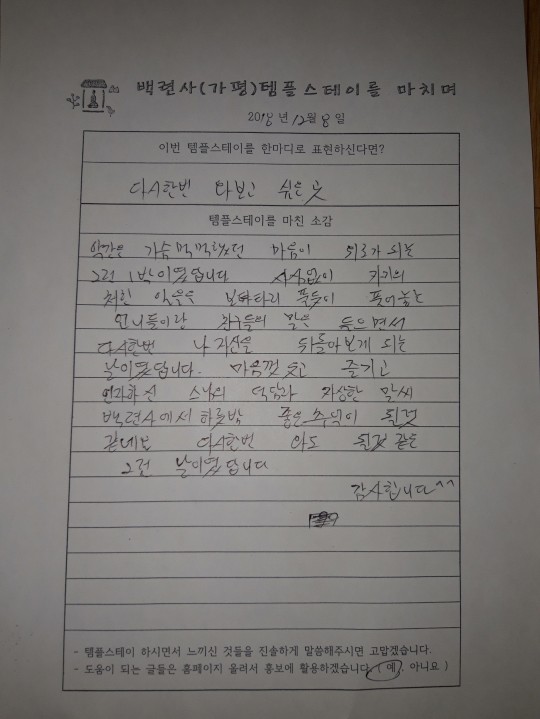 백련사(가평)템플스테이를 마치며
2018년 12월 8일
이번 템플스테이를 한마디로 표현하신다면?
다시한번 와보고 싶은 곳
템플스테이를 마친 소감
약간은 가슴먹먹했던 마음이 위로가 되는
그런 1박이였답니다 서슴없이 자기의
처한 일들을 보따리 풀듯이 풀어놓는
언니들이랑 친구들의 말을 들으면서
다시한번 나 자신을 뒤돌아보게 되는
날이였답니다. 마음껏 웃고 즐기고
연화화 선 스님의 덕담과 자상한 말씨
백련사에서 하룻밤 좋은 추억이 될것
같네요 다시한번 와도 될것 같은
그런 날이였답니다
감사합니다^^
- 템플스테이 하시면서 느끼신 것들을 진솔하게 말씀해주시면 고맙겠습니다.
- 도움이 되는 글들은 홈페이지 올려서 홍보에 활용하겠습니다.( 예, 아니요 )